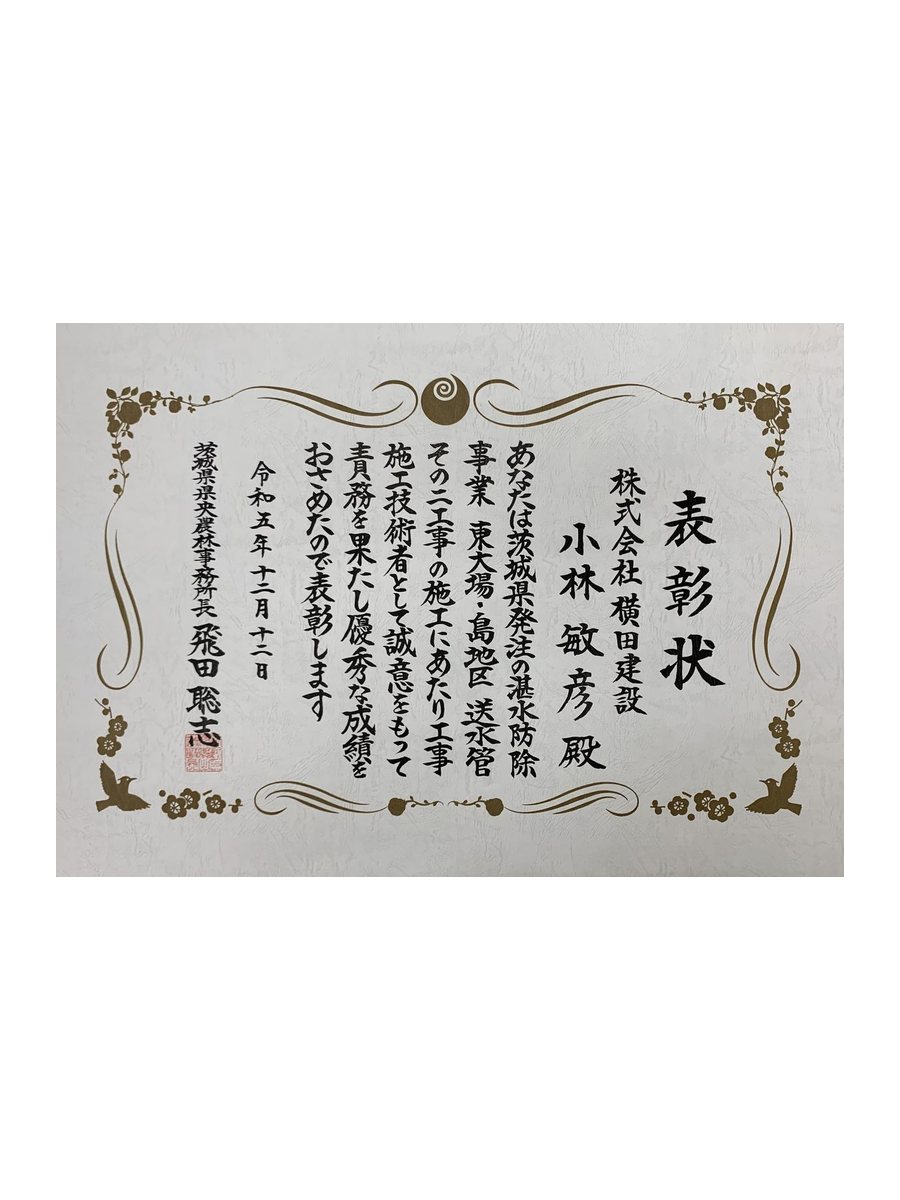 表彰状
株式会社 横田建設
小林敏彦 殿
あなたは茨城県発注の湛水防除
事業 東大場・島地区 送水管
その二工事の施工にあたり工事
施工技術者として誠意をもって
責務を果たし優秀な成績を
おさめたので表彰します
令和五年十二月十二日
茨城県県央農林事務所長 飛田聡志